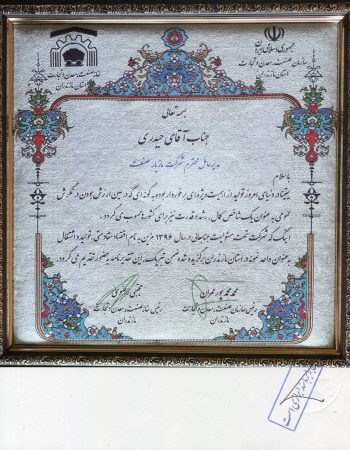 جمهوری اسلامی ایران
سازمان صنعت، معدن و تجارت
استان مازندران
خانه صنعت، معدن و تجارت
استان مازندران
بسمه تعالی
جناب آقای حیدری
مدیرعامل محترم شرکت مازیار صنعت
با سلام
یقیناً در دنیای امروز تولید از اهمیت ویژه ای برخوردار بوده به گونه ای که در عین ارزش بودن در نگرش
عمومی به عنوان یک شاخص کمال، رشد و قدرت نیز برای کشورها محسوب می گردد.
اینک که شرکت تحت مسئولیت جنابعالی در سال ۱۳۹۶ مزین به نام اقتصاد مقاومتی، تولید و اشتغال
به عنوان واحد نمونه در استان مازندران برگزیده شده ضمن تبریک، این تقدیرنامه به حضور تقدیم می گردد.
محمد محمدپور عمران
رئیس سازمان صنعت، معدن و تجارت
مازندران
رئیس خانه صنعت، معدن و تجارت
مازندران